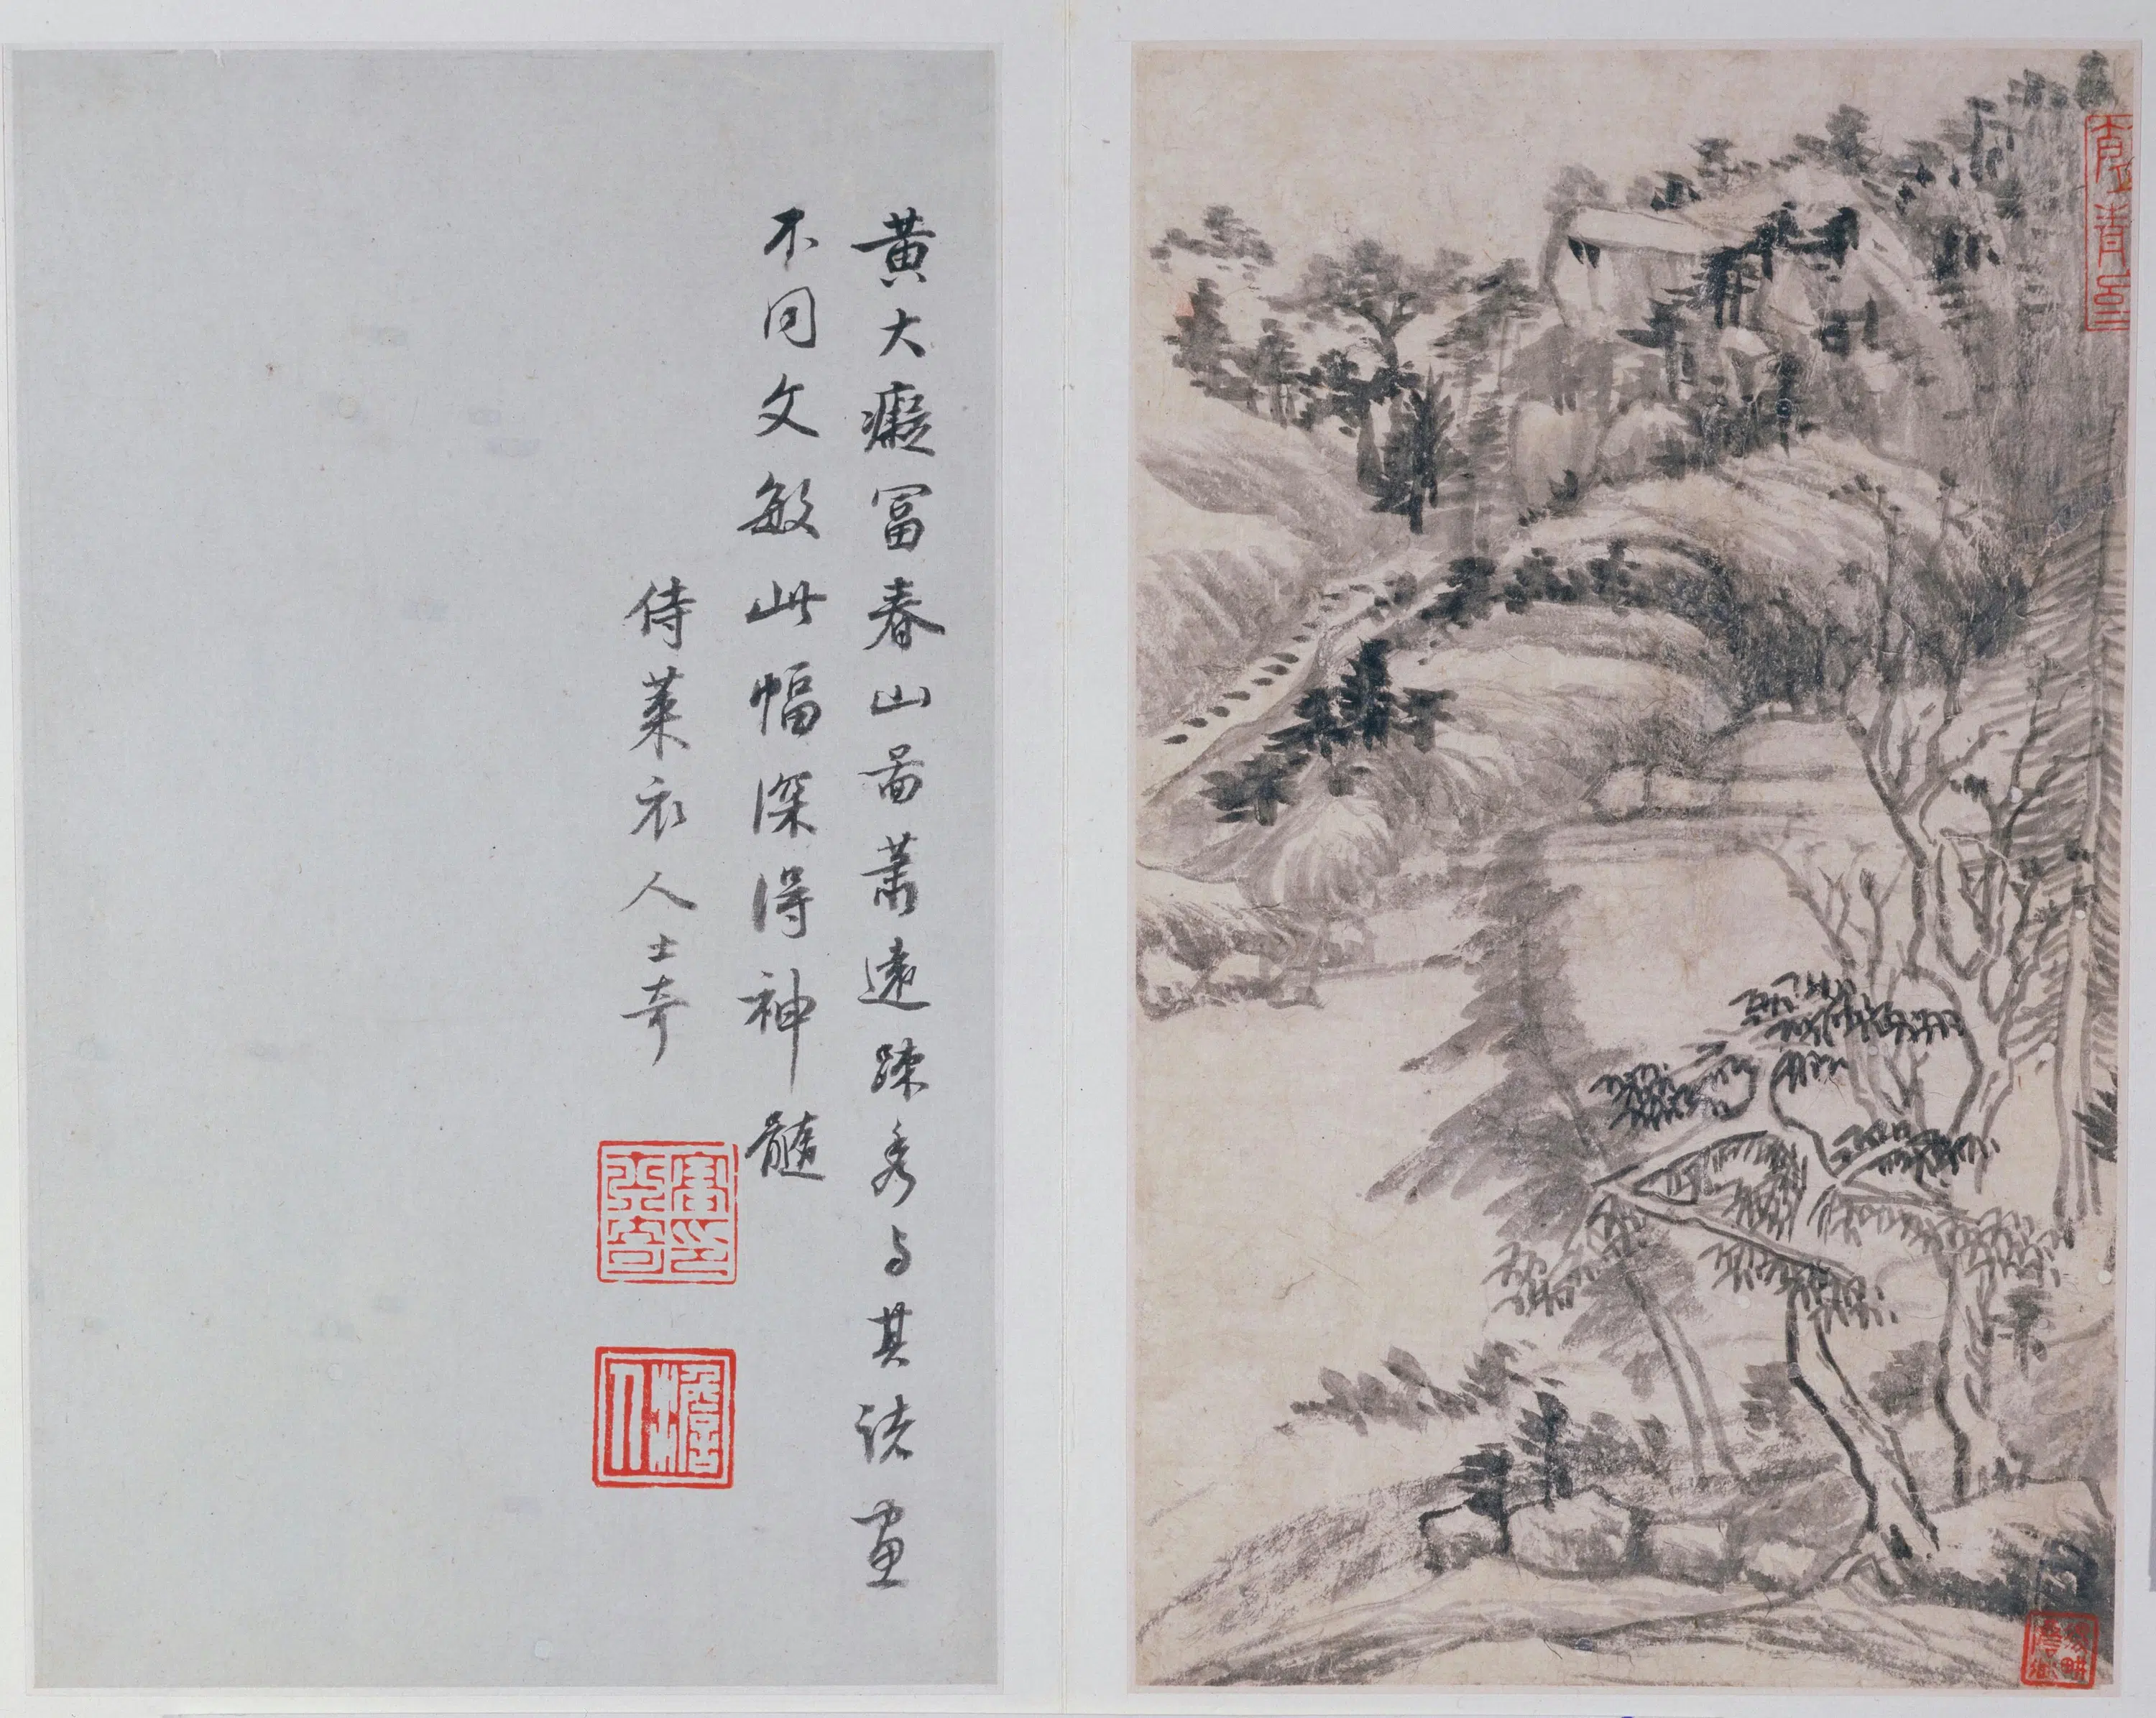 黃大癡富春山啚蕭遠踈秀与其諸畫
不同文敏此幅深得神髓
侍萊衣人士奇